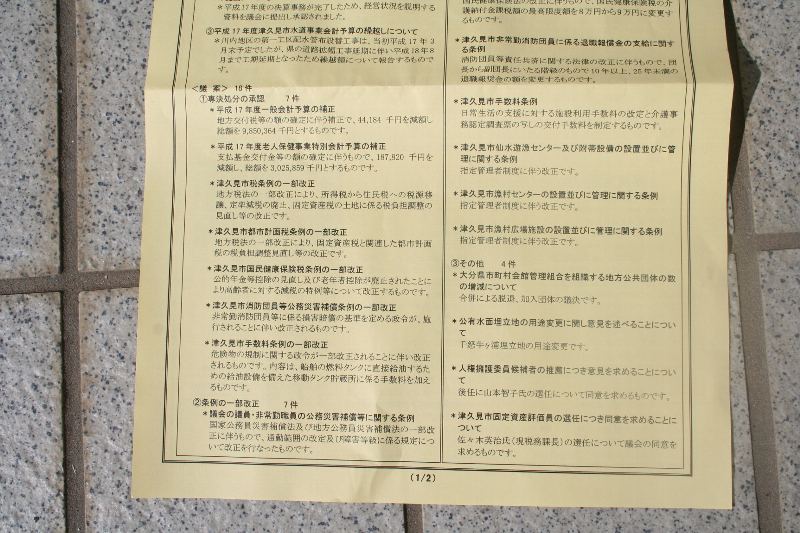 *平成17年度の決算事務が完了したため、経営状況を説明する
資料を議会に提出し承認されました。
③平成17年度津久見市水道事業会計予算の繰越しについて
*川内地区の第一工区配水管布設替工事は、当初平成17年3
月末予定でしたが、県の道路拡幅工事延期に伴い平成18年8
月まで工期延期となったため繰越額について報告するもので
す。
<議 案> 18件
①専決処分の承認 7件
*平成17年度一般会計予算の補正
地方交付税等の額の確定に伴う補正で、44,184千円を減額し
総額を9,850,364千円とするものです。
*平成17年度老人保健事業特別会計予算の補正
支払基金交付金等の額の確定に伴うもので、187,920千円を
減額し、総額を3,025,859千円とするものです。
*津久見市税条例の一部改正
地方税法の一部改正により、所得税から住民税への税源移
譲、定率減税の廃止、固定資産税の土地に係る税負担調整の
見直し等の改正です。
*津久見市都市計画税条例の一部改正
地方税法の一部改正により、固定資産税と関連した都市計画
税の税負担調整見直し等の改正です。
*津久見市国民健康保険税条例の一部改正
公的年金等控除の見直し及び老年者控除が廃止されたことに
より高齢者に対する減税の特例等について改正するものです。
*津久見市消防団員等公務災害補償条例の一部改正
非常勤消防団員等に係る損害賠償の基準を定める政令が、施
行されることに伴い改正されるものです。
*津久見市手数料条例の一部改正
危険物の規制に関する政令が一部改正されることに伴い改正
されるものです。内容は、船舶の燃料タンクに直接給油するた
めの給油設備を備えた移動タンク貯蔵所に係る手数料を加え
るものです。
②条例の一部改正 7件
*議会の議員・非常勤職員の公務災害補償等に関する条例
国家公務員災害補償法及び地方公務員災害補償法の一部改
正に伴うもので、通勤範囲の改定及び障害等級に係る規定につ
いて改正を行なったものです。
護納付金課税額の最高限度額を8万円から9万円に変更す
るものです。
*津久見市非常勤消防団員に係る退職報償金の支給に関す
る条例
消防団員等責任共済に関する法律の改正に伴うもので、団
長から副団長にいたる階級のもので10年以上、25年未満の
退職報奨金の額を変更するものです。
*津久見市手数料条例
日常生活の支援に対する施設利用手数料の改定と介護事
務認定調査票の写しの交付手数料を制定するものです。
*津久見市仙水遊漁センター及び附帯設備の設置並びに管
理に関する条例
指定管理者制度に伴う改正です。
*津久見市漁村センターの設置並びに管理に関する条例
指定管理者制度に伴う改正です。
*津久見市漁村広場施設の設置並びに管理に関する条例
指定管理者制度に伴う改正です。
③その他 4件
*大分県市町村会館管理組合を組織する地方公共団体の数
の増減について
合併による脱退、加入団体の議決です。
*公有水面埋立地の用途変更に関し意見を述べることについ
て
千怒牛ヶ浦埋立地の用途変更です。
*人権擁護委員候補者の推薦につき意見を求めることについ
て
後任に山本智子氏の選任について同意を求めるものです。
*津久見市固定資産評価員の選任につき同意を求めることに
ついて
佐々木英治氏(現税務課長)の選任について議会の同意を
求めるものです。
(1/2)